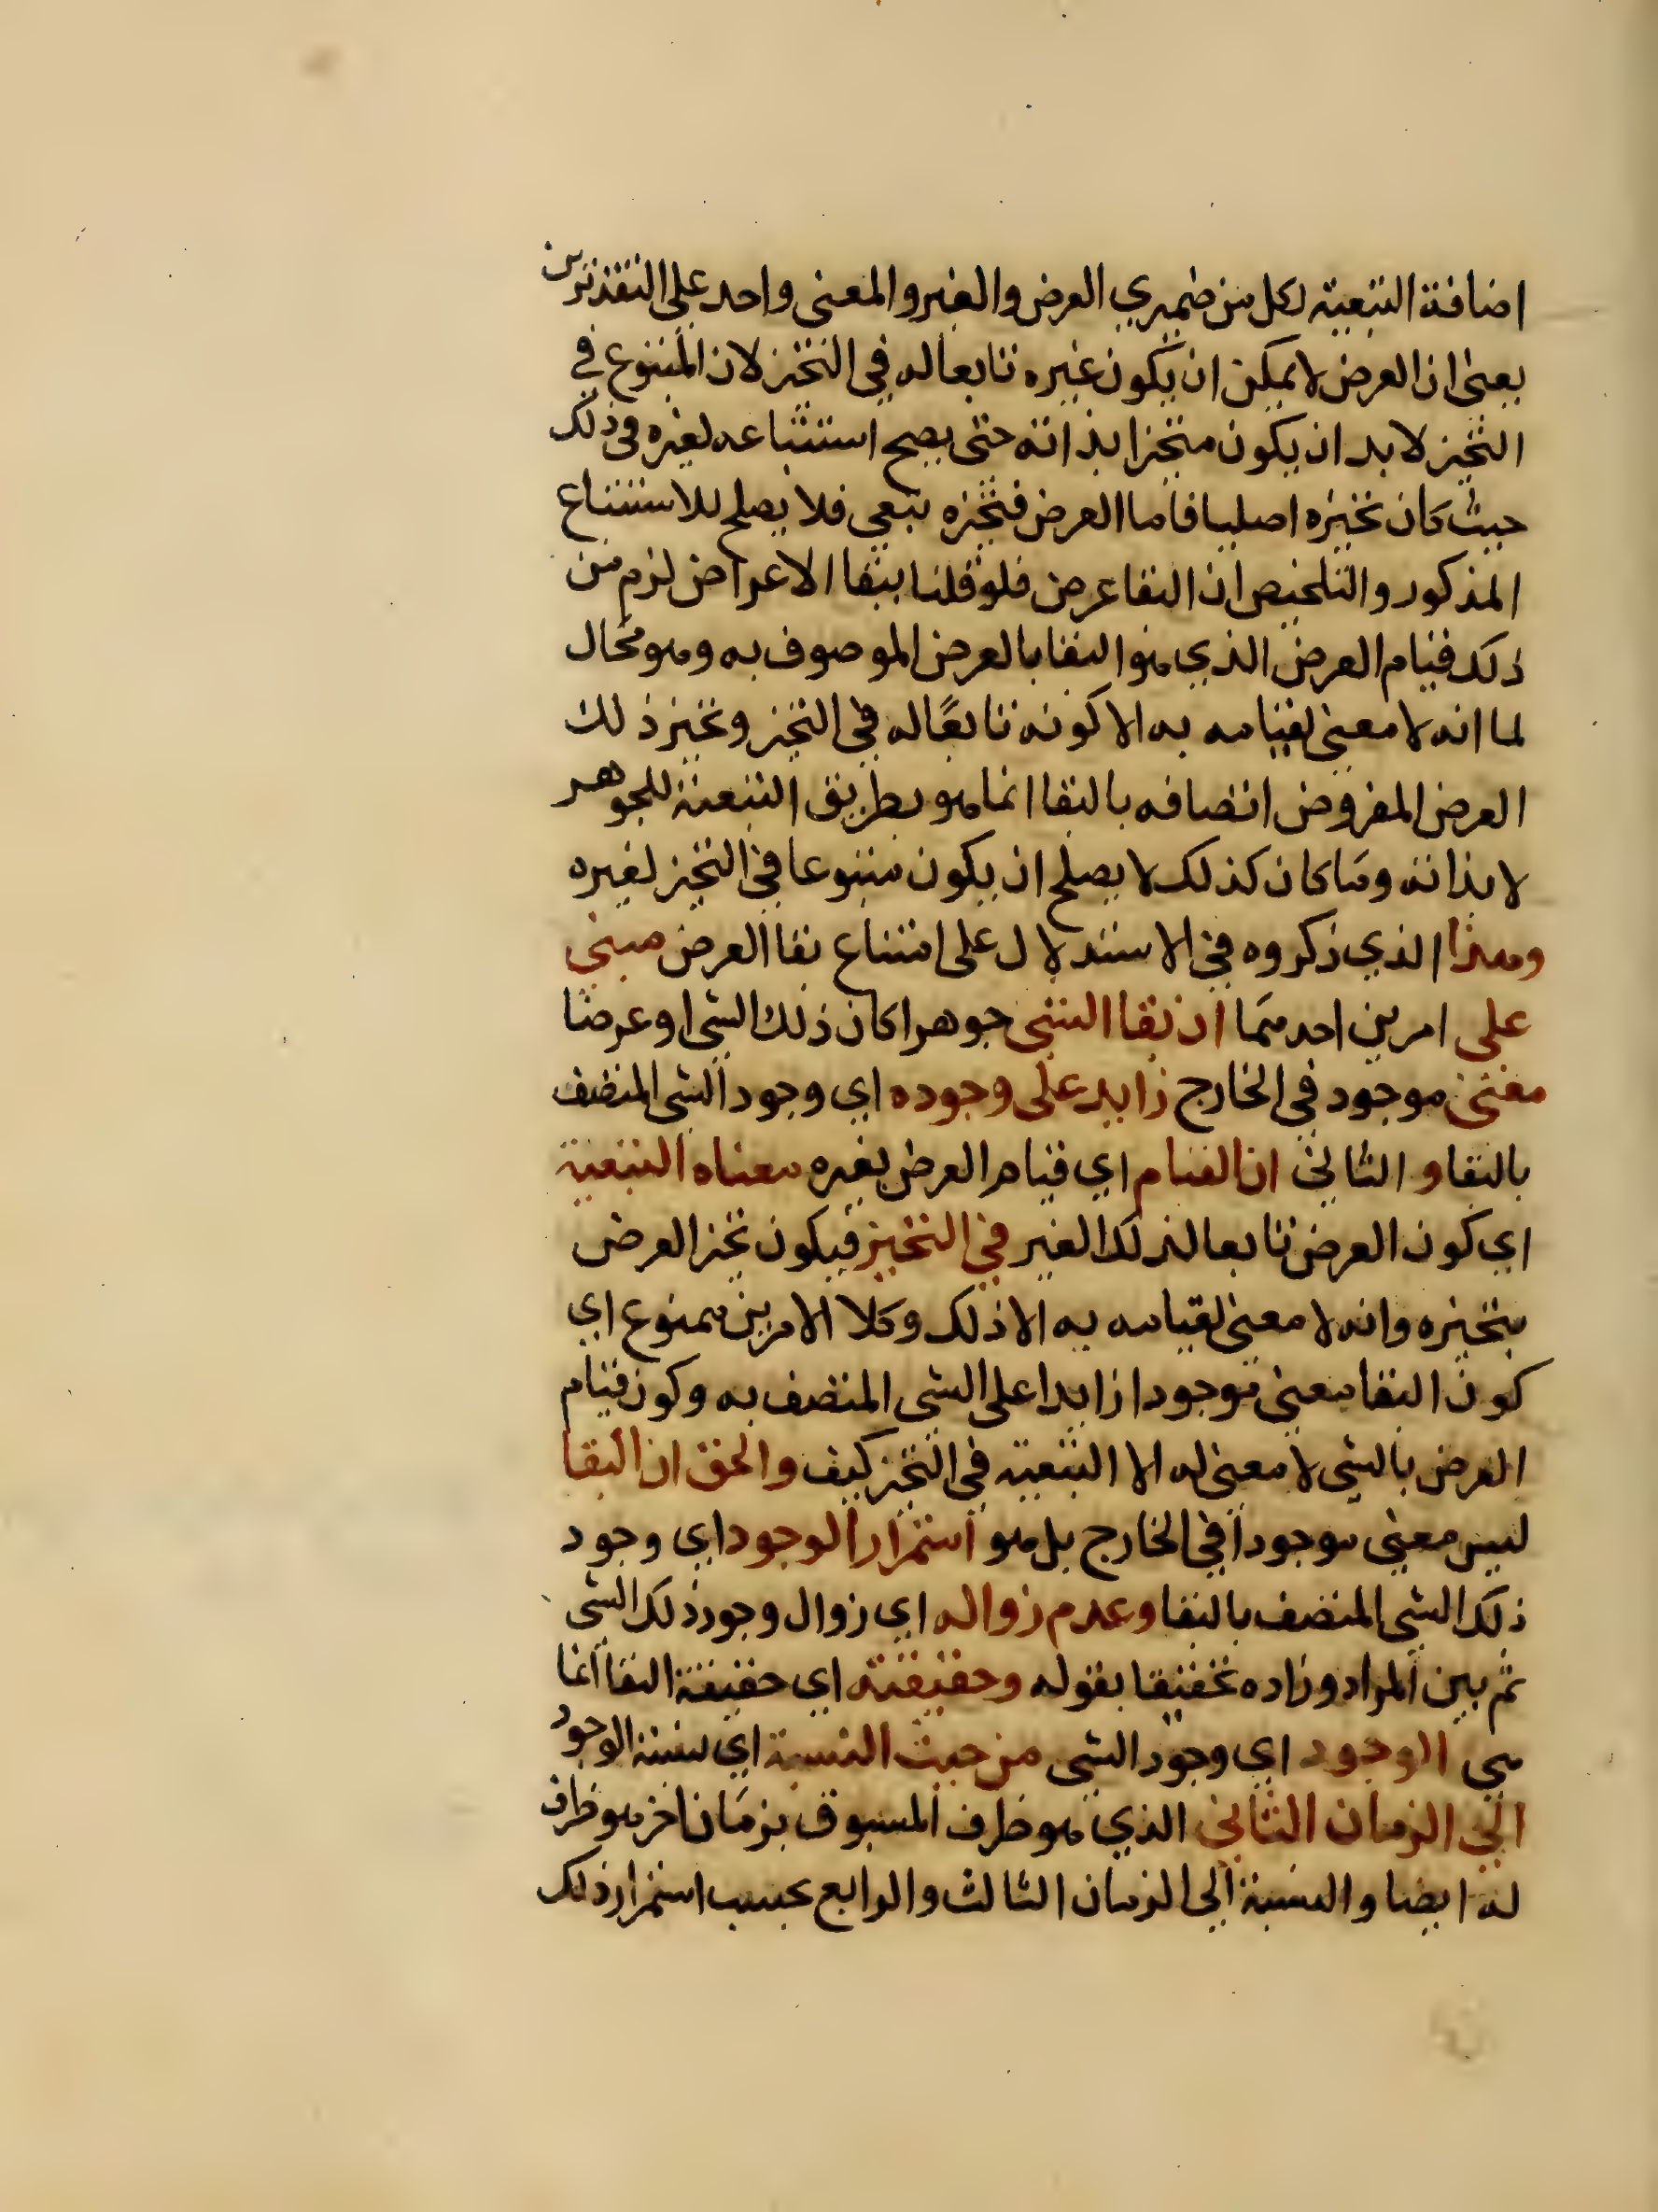 اضافة التبعية لكل من ضميري العرض والغير والمعنى واحد على التقديرين
بمعنى ان العرض لا يمكن ان يكون غيره تابعا له في التحيز لان المتبوع في
التحيز لا بد ان يكون متحيزا بذاته حتى يصح استتباعه لغيره في ذلك
حيث كان تحيزه اصليا فاما العرض فتحيزه تبعي فلا يصلح للاستتباع
المذكور والتلخيص ان البقا عرض فلو قلنا ببقا الاعراض لزم من
ذلك قيام العرض الذي هو البقا بالعرض الموصوف به وهو محال
لما انه لا معنى لقيامه به الا كونه تابعًا له في التحيز وتحيز ذلك
العرض المفروض اتصافه بالبقا انما هو بطريق التبعية للجوهر
لا بذاته وما كان كذلك لا يصلح ان يكون متبوعا في التحيز لغيره
وهذا الذي ذكروه في الاستدلال على امتناع بقا العرض مبني
على امرين احدهما ان بقا الشي جوهرا كان ذلك الشي او عرضا
معنى موجود في الخارج زايد على وجوده اي وجود الشي المتصف
بالبقا و الثاني ان القيام اي قيام العرض بغيره معناه التبعية
اي كون العرض تابعا لذلك الغير في التحيز فيكون تحيز العرض
بتحيزه وانه لا معنى لقيامه به الا ذلك وكلا الامرين ممنوع اي
كون البقا معنى موجودا زايدا على الشي المتصف به وكون قيام
العرض بالشي لا معنى له الا التبعية في التحيز كيف والحق ان البقا
ليس معنى موجودا في الخارج بل هو استمرار الوجود اي وجود
ذلك الشي المتصف بالبقا وعدم زواله اي زوال وجود ذلك الشي
ثم بين المراد وزاده تحقيقا بقوله وحقيقته اي حقيقة البقا انما
هي الوجود اي وجود الشي من حيث النسبة اي نسبة الوجود
الى الزمان الثاني الذي هو ظرف المسبوق بزمان اخر هو ظرف
له ايضا والنسبة الى الزمان الثالث والرابع بحسب استمرار ذلك